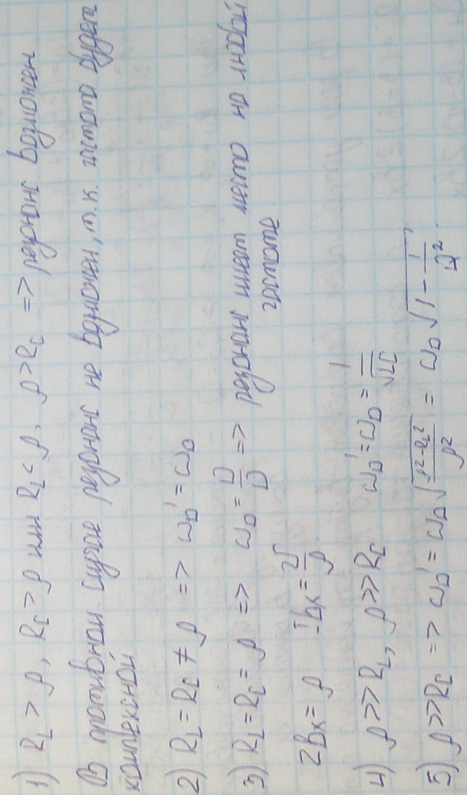 1) R_L > ρ, R_C > ρ или R_L < ρ, ρ > R_C => резонанс возможен
В противном случае резонанс не возможен, т.к. частота будет
комплексной
2) R_L = R_C ≠ ρ => ω_0' = ω_0
3) R_L = R_C = ρ => ω_0 = 0/0 => резонанс имеет место на любой
частоте
Z_вх = ρ I_вх = U/ρ
4) ρ >> R_L, ρ >> R_C ω_0' = ω_0 = 1/√LC
5) ρ >> R_C => ω_0' = ω_0 √(ρ²-R_L²)/ρ² = ω_0 √1 - 1/Q².